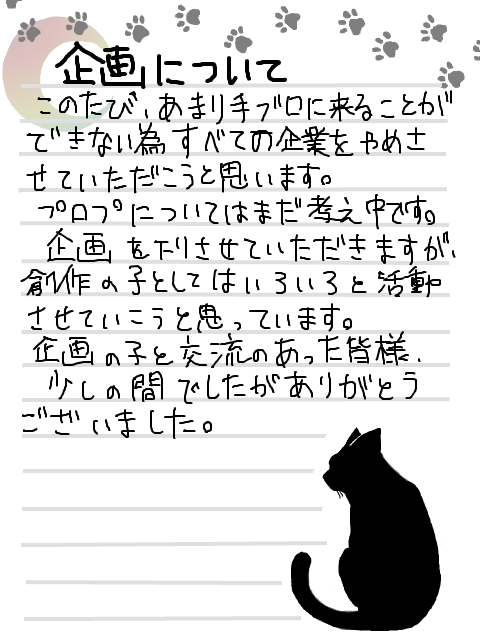 企画について
このたび、あまり手ブロに来ることが
できない為すべての企業をやめさ
せていただこうと思います。
プロプについてはまだ考え中です。
企画を下りさせていただきますが、
創作の子としてはいろいろと活動
させていこうと思っています。
企画の子と交流のあった皆様、
少しの間でしたがありがとう
ございました。